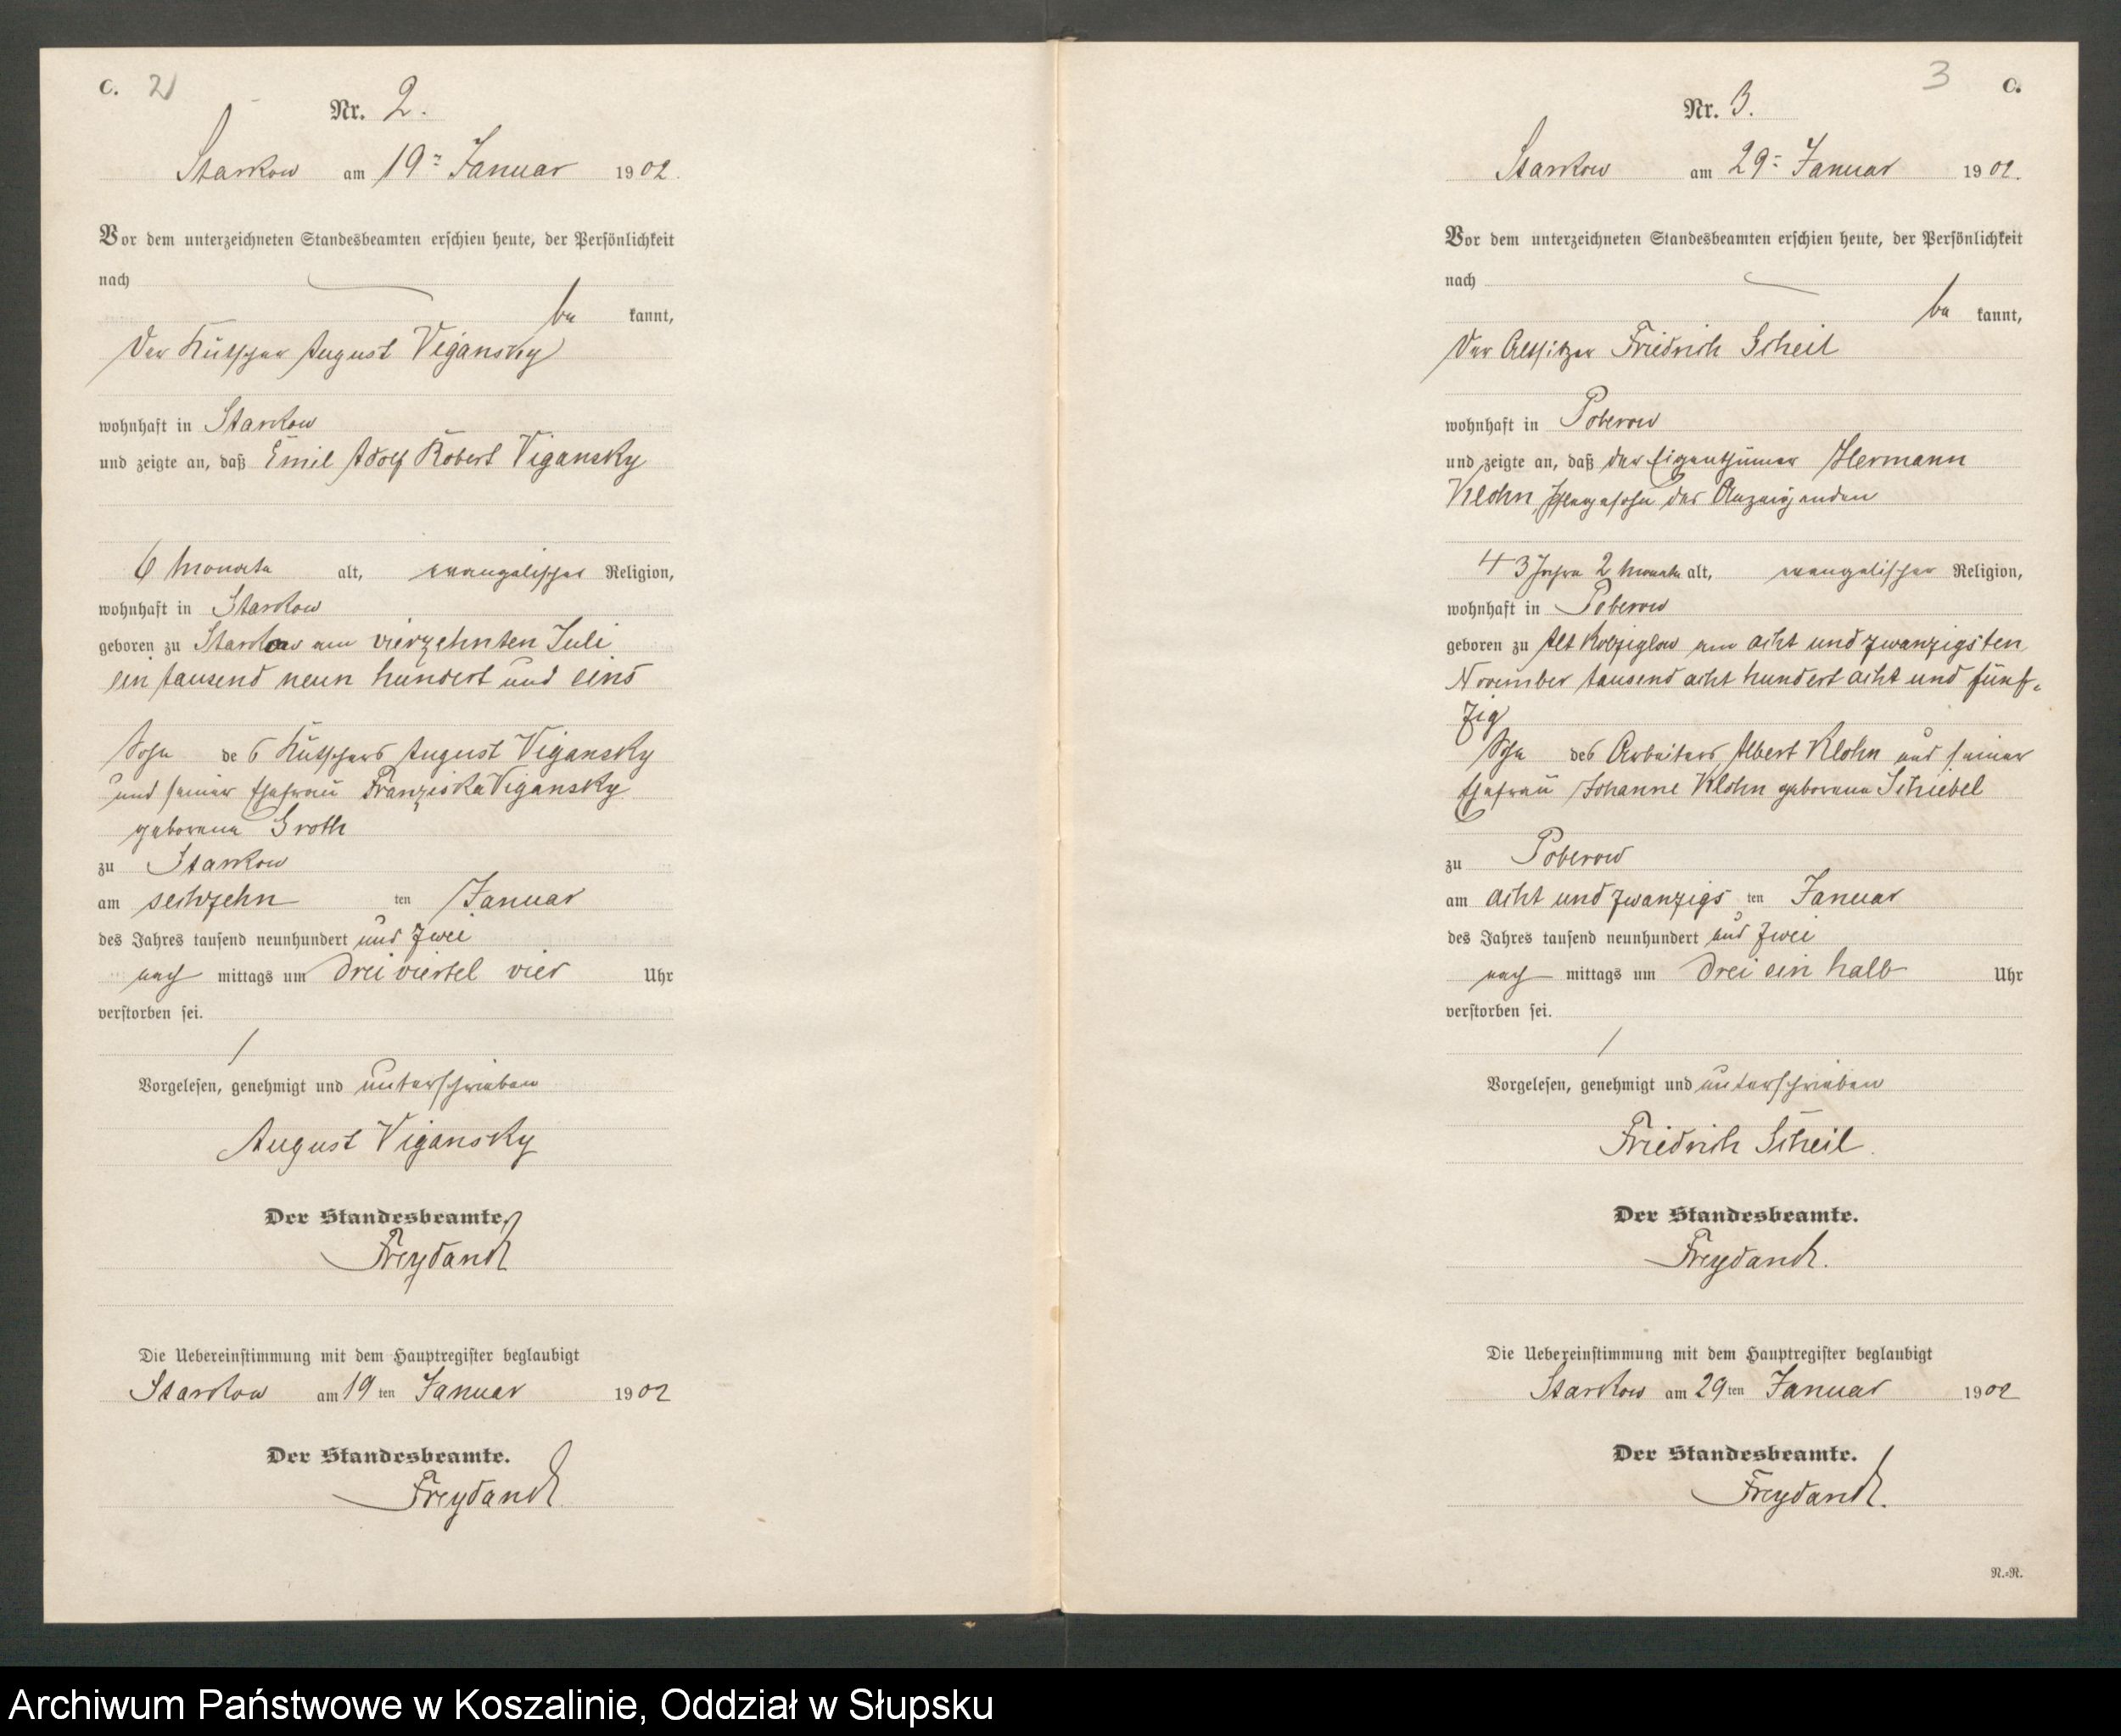 C. 2
Nr. 2.
Starkow am 19ᵗ Januar 1902.
Vor dem unterzeichneten Standesbeamten erschien heute, der Persönlichkeit
nach
be kannt,
der Kutscher August Vigansky
wohnhaft in Starkow
und zeigte an, daß Emil Adolf Robert Vigansky
6 Monate alt, evangelischer Religion,
wohnhaft in Starkow
geboren zu Starkow am vierzehnten Juli
ein tausend neun hundert und eins
Sohn des Kutschers August Vigansky
und seiner Ehefrau Franziska Vigansky
geborene Groth
zu Starkow
am sechzehn ten Januar
des Jahres tausend neunhundert und zwei
nach mittags um drei viertel vier Uhr
verstorben sei.
Vorgelesen, genehmigt und unterschrieben
August Vigansky
Der Standesbeamte.
Freydanck
Die Uebereinstimmung mit dem Hauptregister beglaubigt
Starkow am 19 ten Januar 1902
Der Standesbeamte.
Freydanck
3 C.
Nr. 3.
Starkow am 29ᵗ Januar 1902.
Vor dem unterzeichneten Standesbeamten erschien heute, der Persönlichkeit
nach
be kannt,
der Altsitzer Friedrich Scheil
wohnhaft in Poberow
und zeigte an, daß der Eigenthümer Hermann
Klohn, Pflegesohn des Anzeigenden
43 Jahre 2 Monate alt, evangelischer Religion,
wohnhaft in Poberow
geboren zu Alt Kolziglow am acht und zwanzigsten
November tausend acht hundert acht und fünf-
zig
Sohn des Arbeiters Albert Klohn und seiner
Ehefrau Johanne Klohn geborene Schiebel
zu Poberow
am acht und zwanzigs ten Januar
des Jahres tausend neunhundert und zwei
nach mittags um drei ein halb Uhr
verstorben sei.
Vorgelesen, genehmigt und unterschrieben
Friedrich Scheil.
Der Standesbeamte.
Freydanck.
Die Uebereinstimmung mit dem Hauptregister beglaubigt
Starkow am 29 ten Januar 1902
Der Standesbeamte.
Freydanck.
N.-R.
Archiwum Państwowe w Koszalinie, Oddział w Słupsku